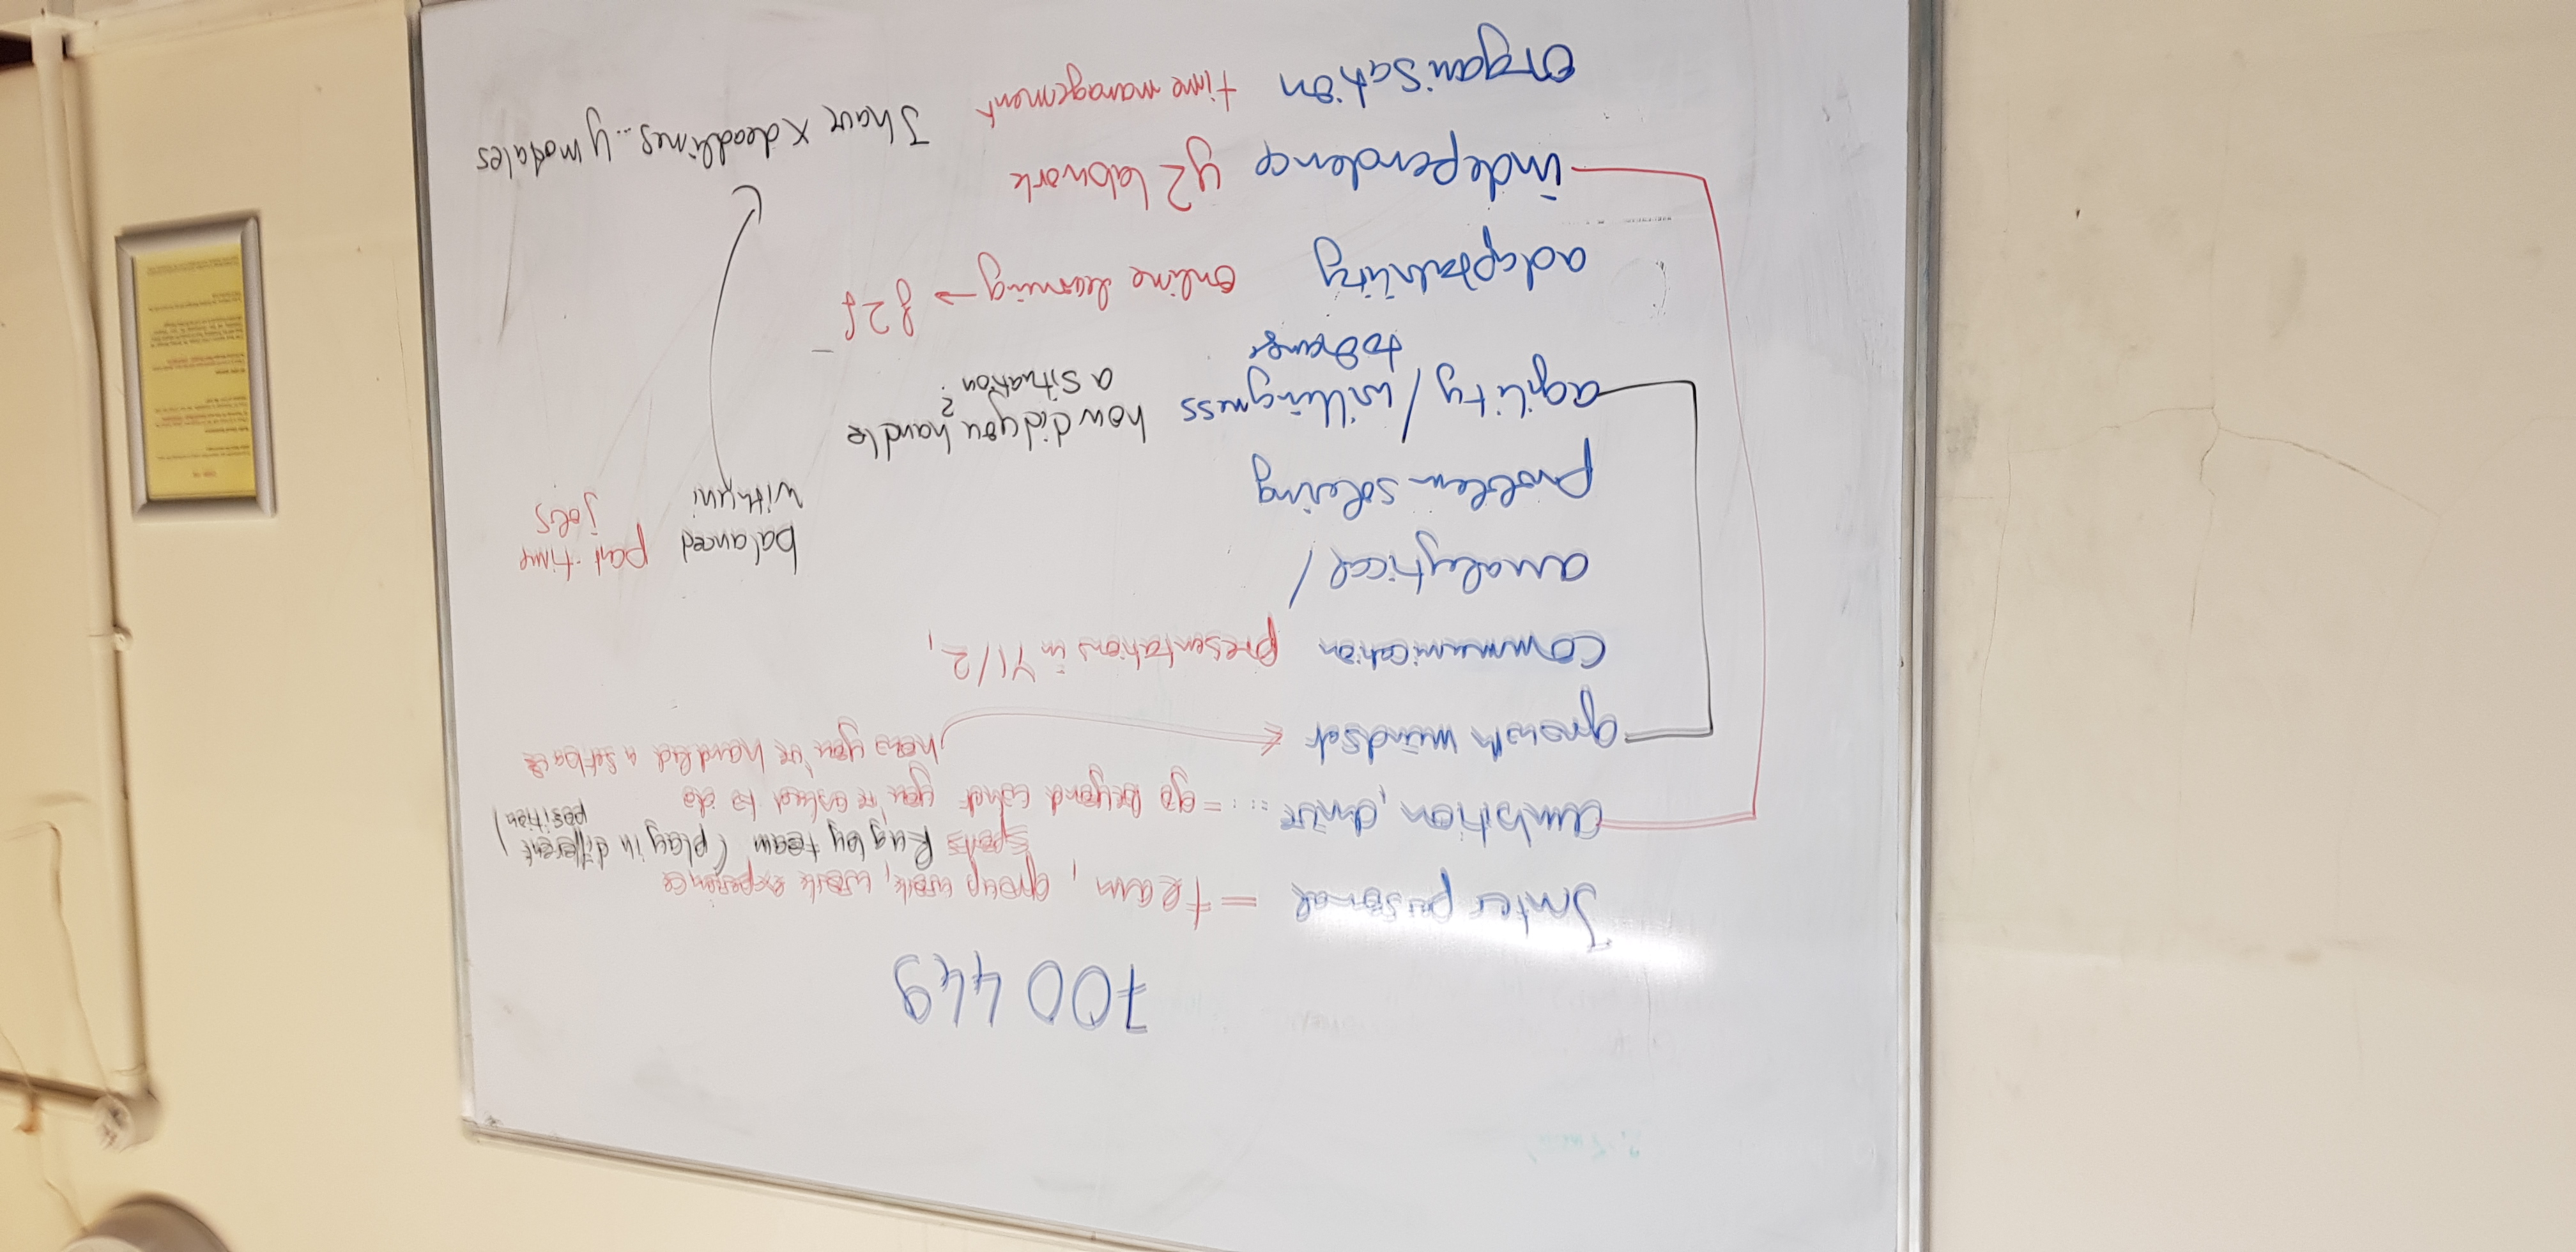 700449
Interpersonal = team, group work, work experience
sports Rugby team (play in different position)
ambition, drive ... = go beyond what you're asked to do
growth mindset how you've handled a setback
communication presentations in Y1/2,
analytical / balanced part-time jobs
with uni
problem solving
agility / willingness how did you handle a situation?
to change
adaptability online learning → f2f
independence y2 labwork
I have x deadlines... y modules
organisation time management